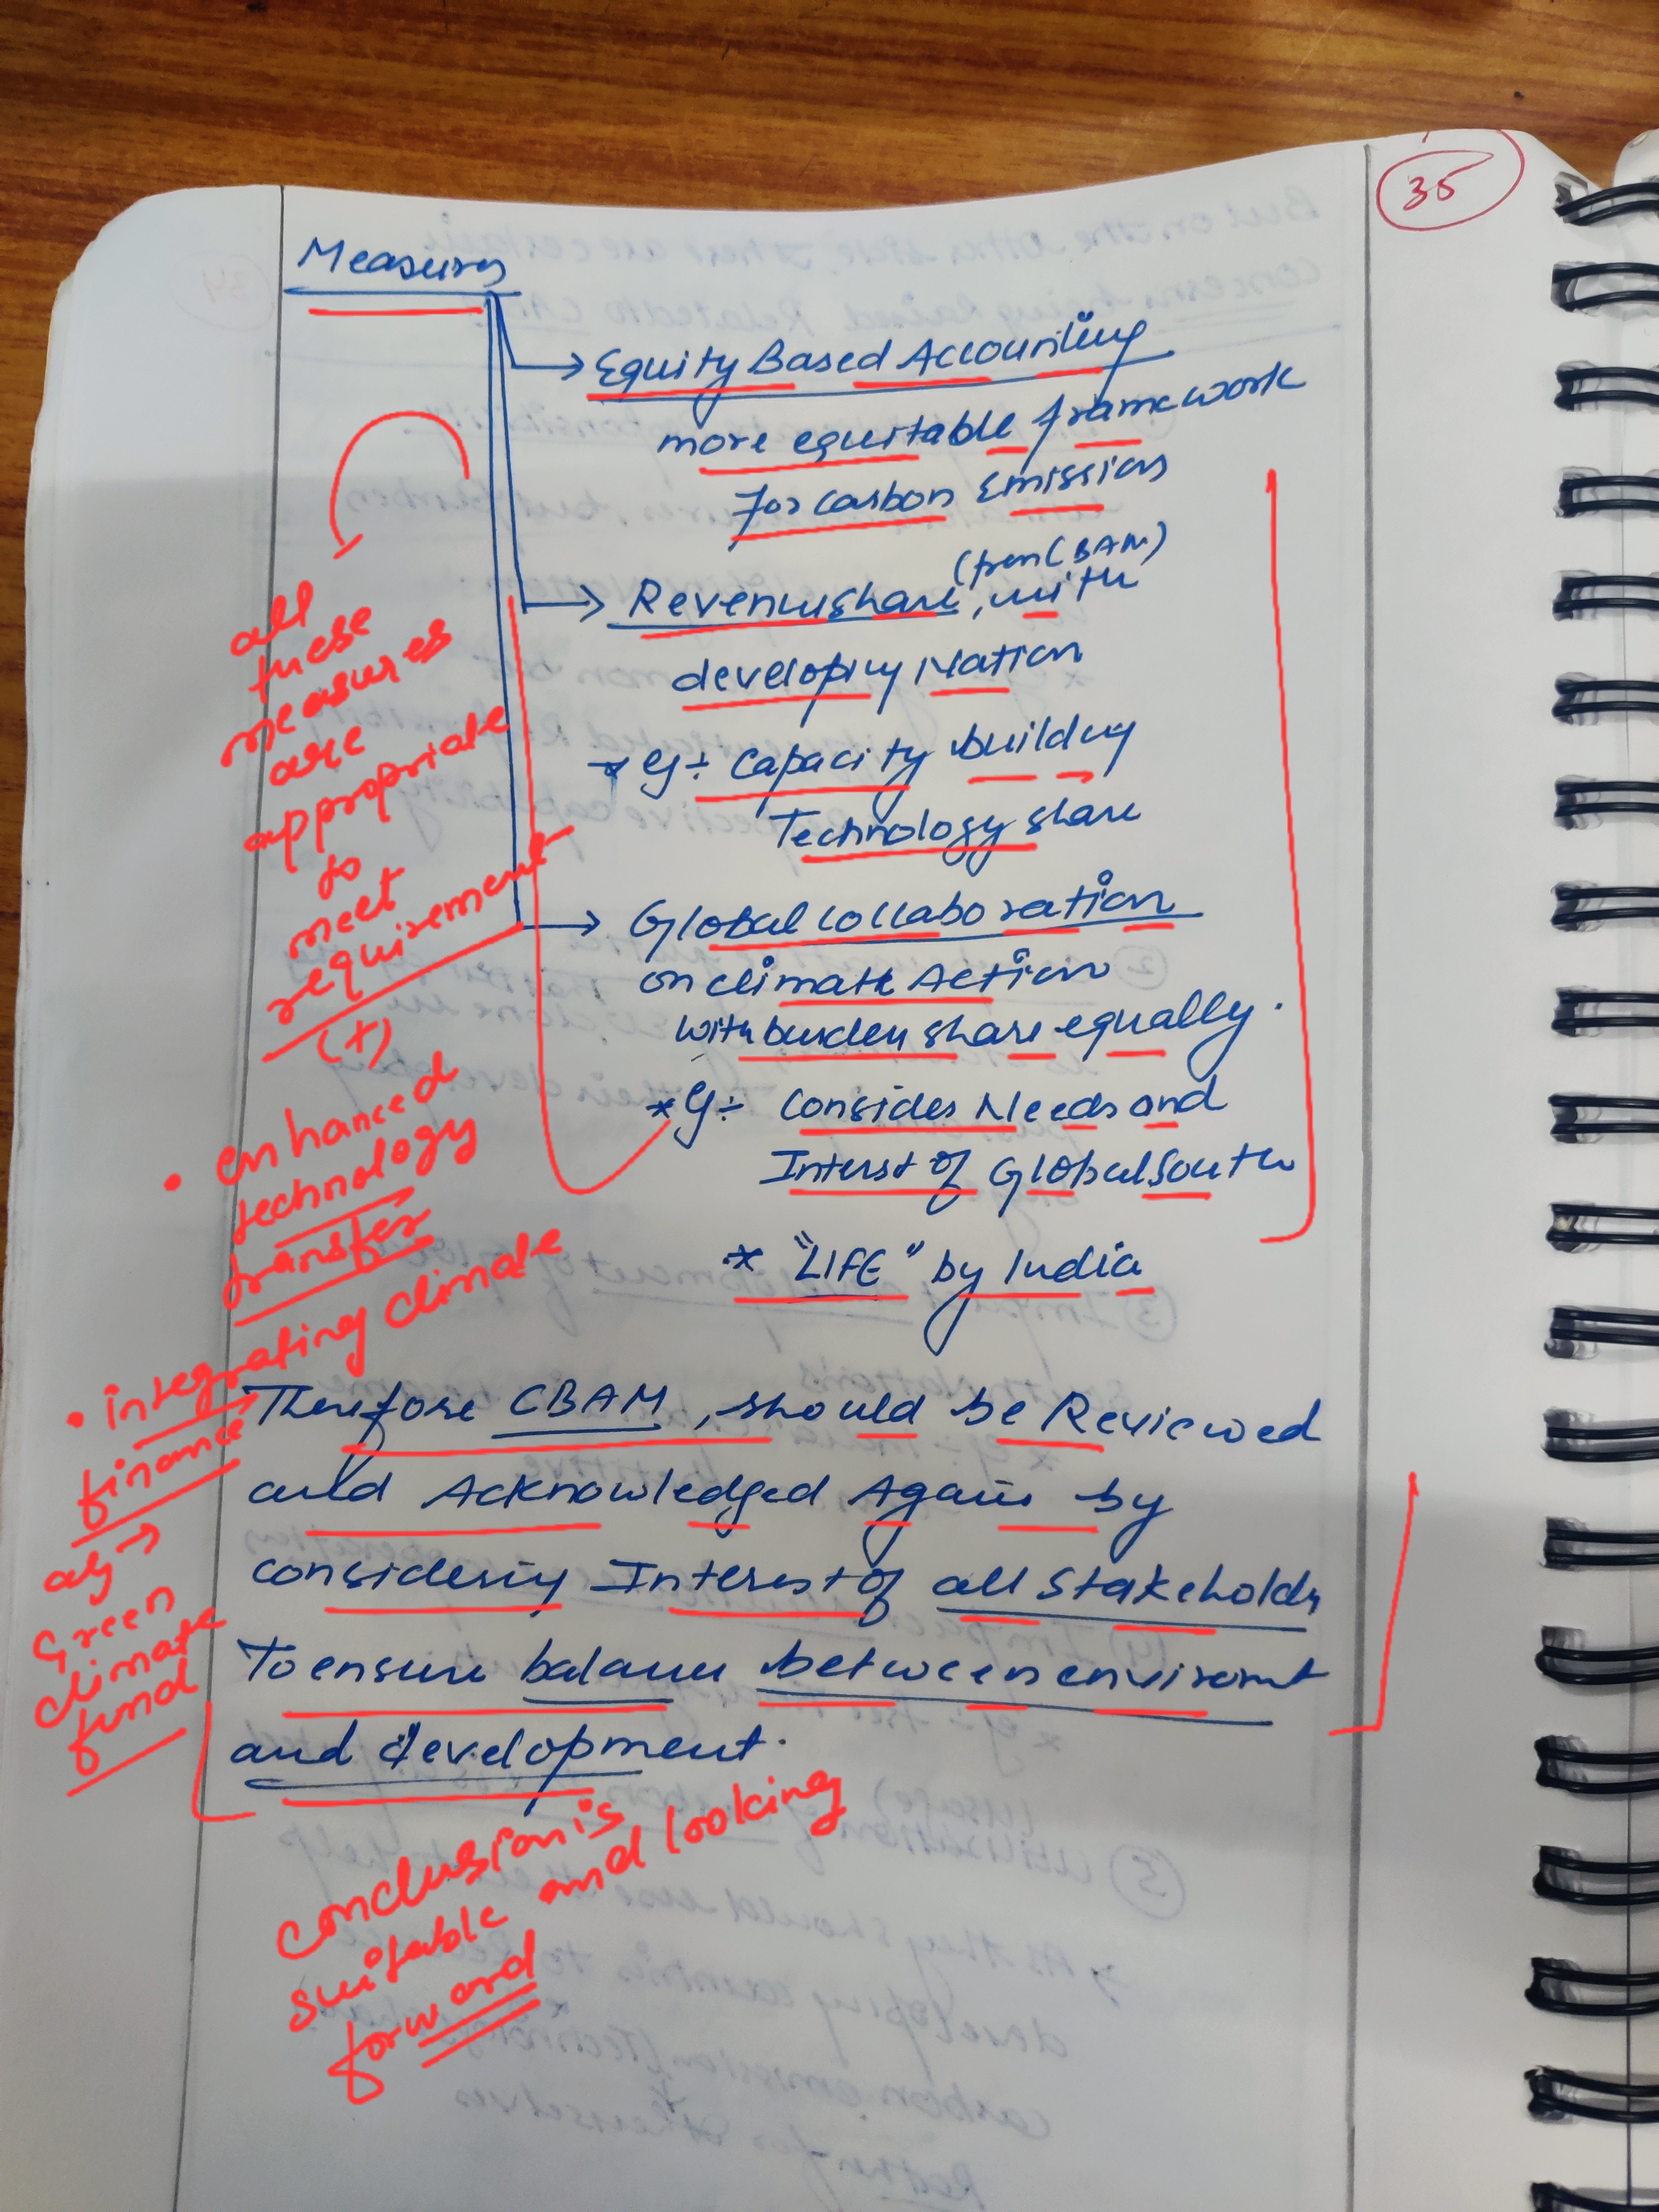 35
Measures
→ Equity Based Accounting
more equitable framework
For carbon Emission
(from CBAM)
→ Revenue share, with
developing Nation
* Eg:- Capacity building
Technology share
→ Global collaboration
on climate Action
with burden share equally.
* Eg:- Consider Needs and
Interst of Global South
* "LIFE" by India
Therefore CBAM, should be Reviewed
and Acknowledged Again by
considering Interest of all Stakeholds
To ensure balance between enviromt
and development.
all
these
measures
are
appropriate
to
meet
requirement
(+)
• enhanced
technology
transfer
• integrating climate
finance
eg →
Green
climate
fund
conclusion is
suitable and looking
forward